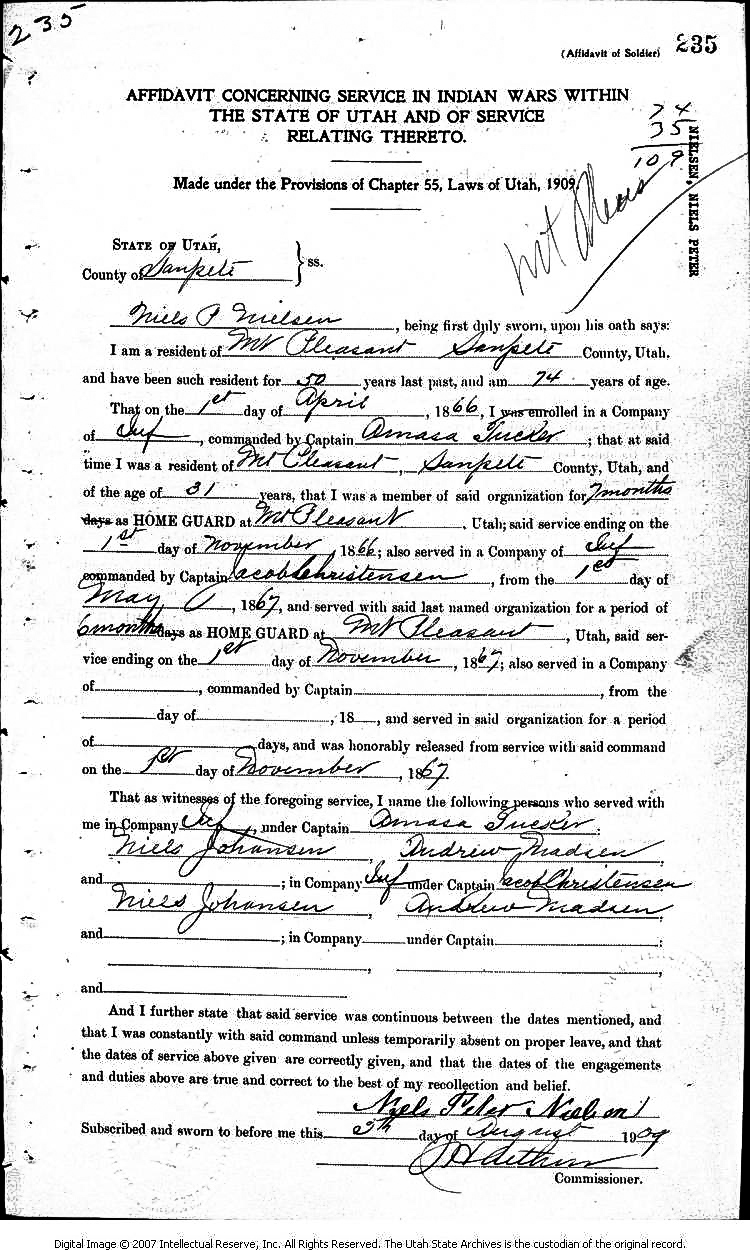 235
(Affidavit of Soldier) 235
AFFIDAVIT CONCERNING SERVICE IN INDIAN WARS WITHIN
THE STATE OF UTAH AND OF SERVICE
RELATING THERETO.
74
35
109
NIELSEN, NIELS PETER
Made under the Provisions of Chapter 55, Laws of Utah, 1909.
STATE OF UTAH,
County of Sanpete } ss.
Niels P Nielsen, being first duly sworn, upon his oath says:
I am a resident of Mt Pleasant Sanpete County, Utah,
and have been such resident for 50 years last past, and am 74 years of age.
That on the 1st day of April, 1866, I was enrolled in a Company
of Inf, commanded by Captain Amasa Tucker; that at said
time I was a resident of Mt Pleasant, Sanpete County, Utah, and
of the age of 31 years, that I was a member of said organization for 7 months
days as HOME GUARD at Mt Pleasant, Utah; said service ending on the
1st day of November, 1866; also served in a Company of Inf
commanded by Captain Jacob Christensen, from the 1st day of
May, 1867, and served with said last named organization for a period of
6 months days as HOME GUARD at Mt Pleasant, Utah, said ser-
vice ending on the 1st day of November, 1867; also served in a Company
of, commanded by Captain, from the
day of, 18, and served in said organization for a period
of days, and was honorably released from service with said command
on the 1st day of November, 1867.
That as witnesses of the foregoing service, I name the following persons who served with
me in Company Inf, under Captain Amasa Tucker.
Niels Johansen, Andrew Madsen,
and; in Company Inf under Captain Jacob Christensen
Niels Johansen, Andrew Madsen
and; in Company under Captain:
and
And I further state that said service was continuous between the dates mentioned, and
that I was constantly with said command unless temporarily absent on proper leave, and that
the dates of service above given are correctly given, and that the dates of the engagements
and duties above are true and correct to the best of my recollection and belief.
Niels Peter Nielsen
Subscribed and sworn to before me this 5th day of August 1909
Commissioner.
Digital Image © 2007 Intellectual Reserve, Inc. All Rights Reserved. The Utah State Archives is the custodian of the original record.